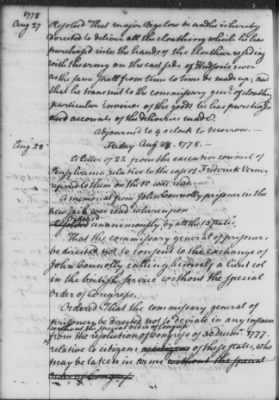 1778
Aug 27
Resolved That major Bigelow be and he is hereby
directed to deliver all the cloathing which he has
purchased into the hands of the Clothier residing
with the army on the east side of Hudsons river
as the same shall from time to time be made up; and
that he transmit to the commissary genl of cloathing
particular Invoices of the goods he has purchased
and accounts of the deliveries made.
Adjourned to 9 oClock to Morrow.
Aug. 28
Friday Aug 28. 1778.
A letter of 22 from the executive council of
Pensylvania relative to the case of Frederick Verner
referred to them on the 15 was read
A memorial from John Connolly prisoner in the
new Jail was read whereupon
Ordered
Resolved unanimously by all the 13 states,
That the commissary general of prisoners
be directed not to consent to the exchange of
John Connolly calling himself a lieut col
in the british service without the special
order of Congress.
Ordered That the commissary general of
prisoners be directed not to deviate in any instance
without the special order of Congress
from the resolution of Congress of 30 Decemr. 1777
relative to citizens of these states, who
may be taken in arms without the special
order of Congress